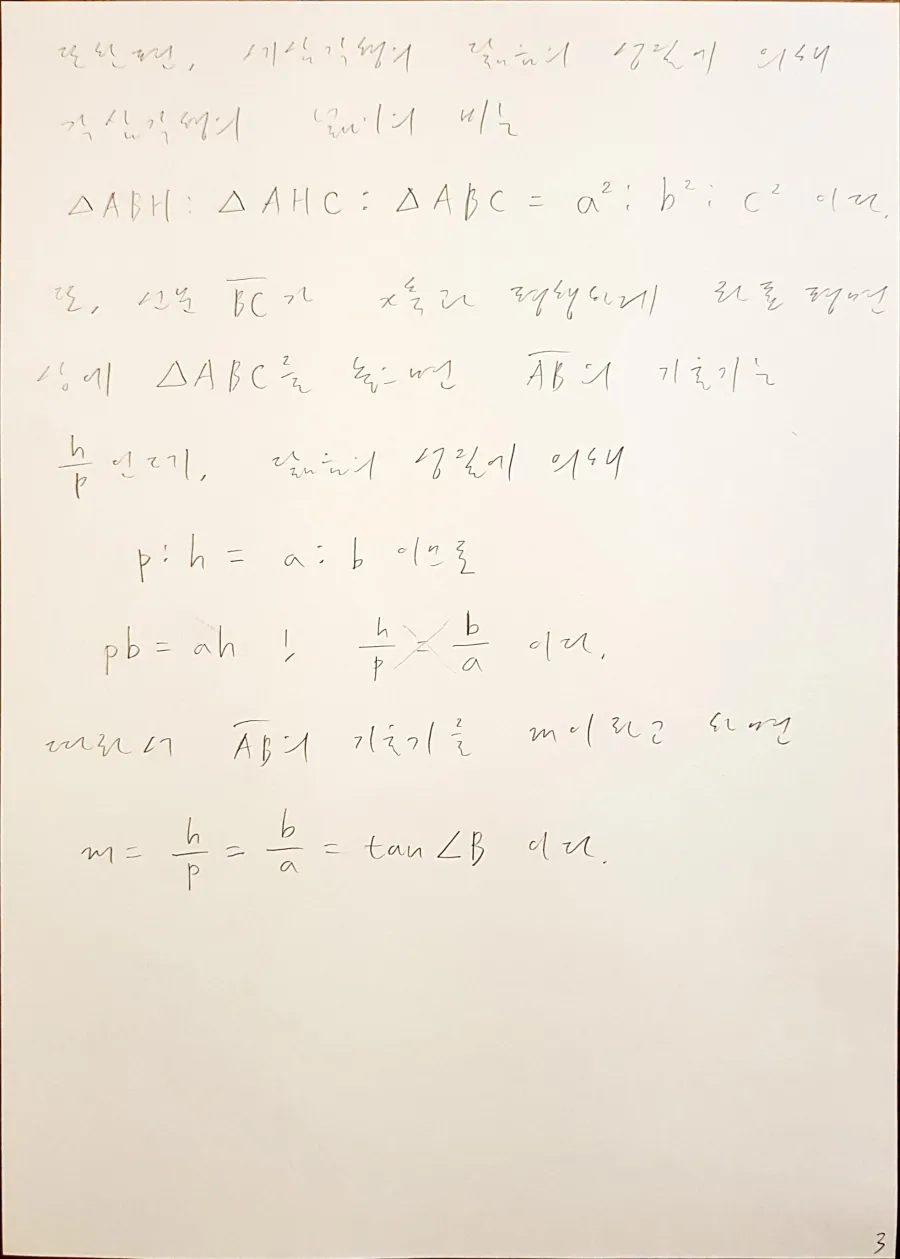 또한편, 세삼각형의 닮음의 성질에 의해
각 삼각형의 넓이의 비는
△ABH : △AHC : △ABC = a² : b² : c² 이다.
또, 선분 B̅C̅가 x축과 평행하게 좌표평면
상에 △ABC를 놓으면 A̅B̅의 기울기는
h/p 인데, 닮음의 성질에 의해
p : h = a : b 이므로
pb = ah, h/p = b/a 이다.
따라서 A̅B̅의 기울기를 m이라고 하면
m = h/p = b/a = tan∠B 이다.
3